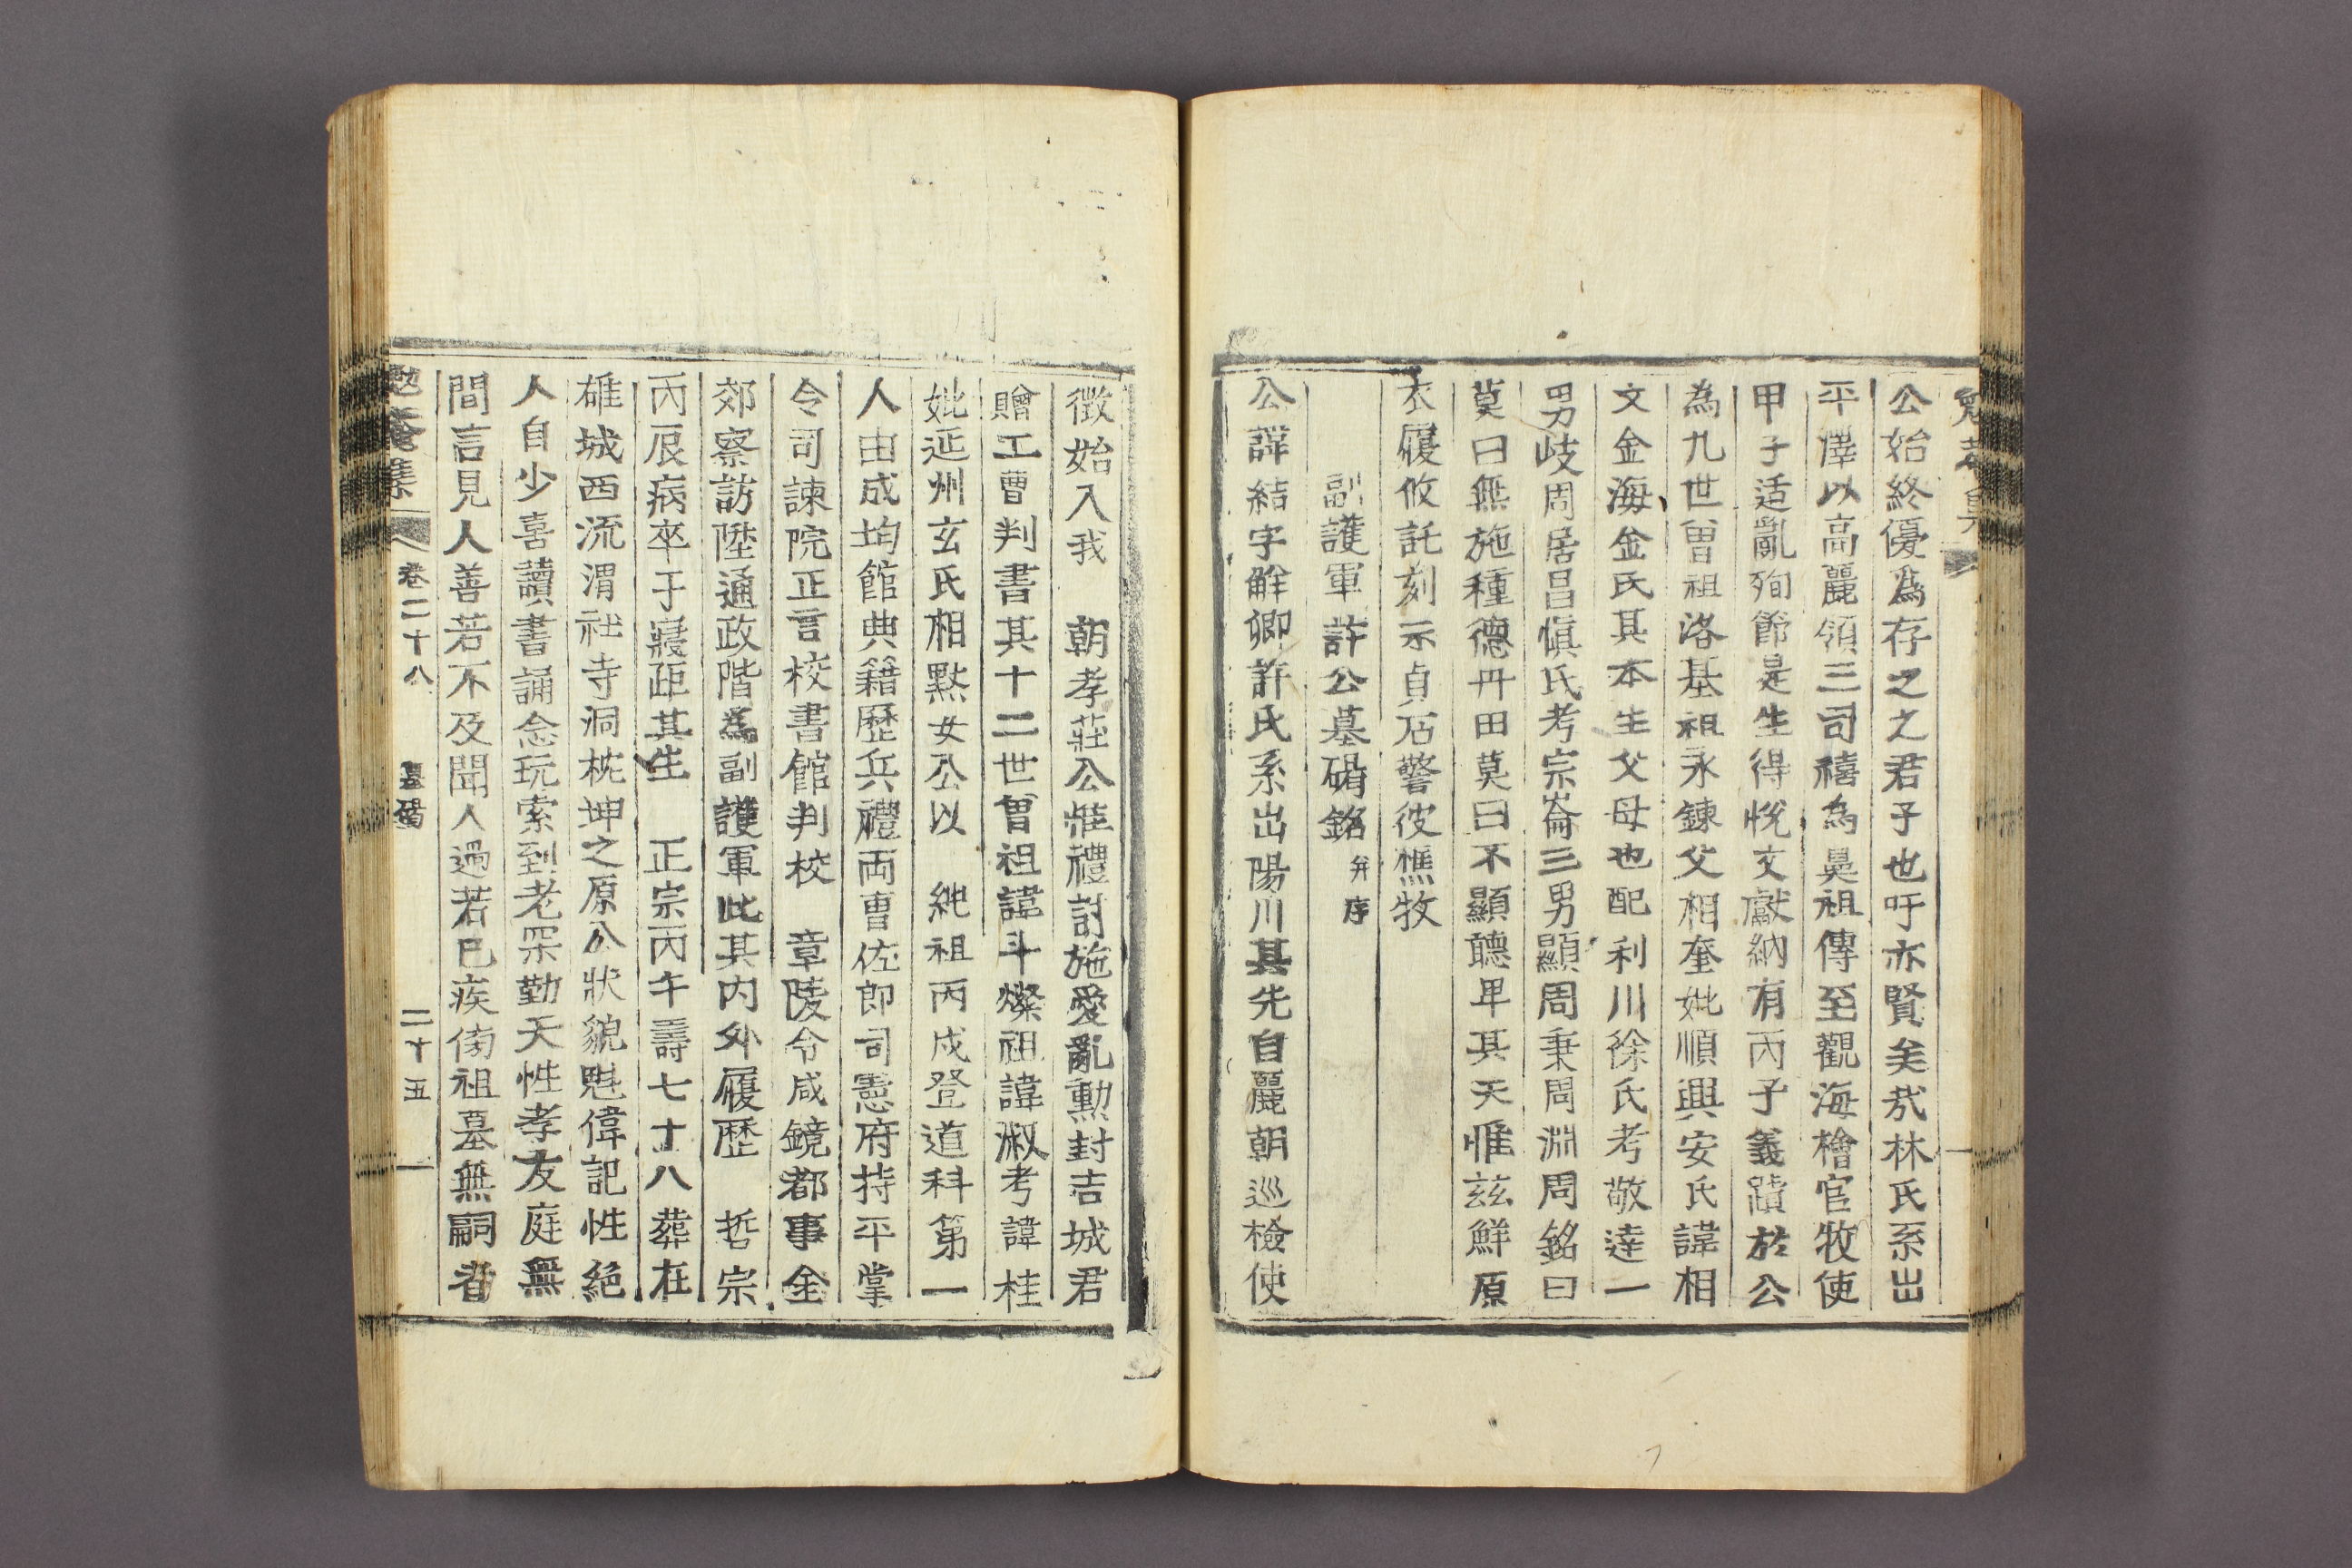 公始終優爲存之之君子也吁亦賢矣哉林氏系出
平澤以高麗領三司禧為鼻祖傳至觀海檜官牧使
甲子适亂殉節是生得悅文獻納有丙子義蹟於公
為九世曾祖洛基祖永鍊父相奎妣順興安氏諱相
文金海金氏其本生父母也配利川徐氏考敬達一
男岐周居昌愼氏考宗崙三男顯周秉周淵周銘曰
莫曰無施種德丹田莫曰不顯聽卑其天惟玆鮮原
衣履攸託刻示貞石警彼樵牧
副護軍許公墓碣銘 幷序
公諱結字觧卿許氏系出陽川其先自麗朝巡檢使
徵始入我 朝孝莊公惟禮討施愛亂勳封吉城君
贈工曹判書其十二世曾祖諱斗燦祖諱淑考諱桂
妣延州玄氏相點女公以 純祖丙戌登道科第一
人由成均館典籍歷兵禮両曹佐郎司憲府持平掌
令司諫院正言校書館判校 章陵令咸鏡都事金
郊察訪陞通政階為副護軍此其内外履歷 哲宗
丙辰病卒于寢距其生 正宗丙午壽七十八葬在
雄城西流渭社寺洞枕坤之原公狀貌魁偉記性絕
人自少喜讀書誦念玩索到老罙勤天性孝友庭無
間言見人善若不及聞人過若已疾傍祖墓無嗣者
勉菴集 卷二十八 墓碣 二十五